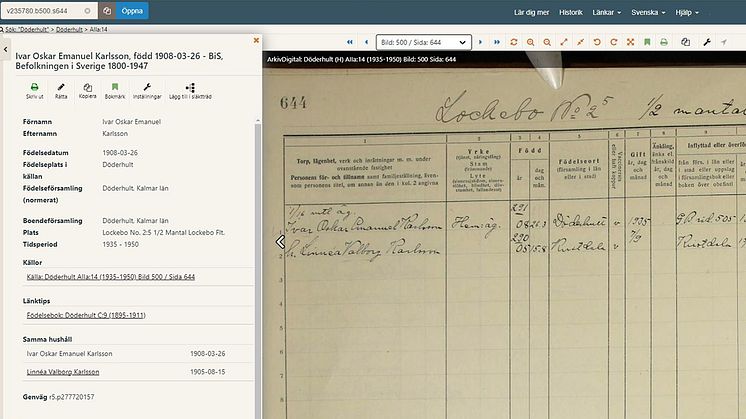 v235780.b500.s644
Öppna
Lär dig mer Historik Länkar Svenska Hjälp
Sök: "Döderhult" > Döderhult > AIIa:14
Ivar Oskar Emanuel Karlsson, född 1908-03-26 - BiS,
Befolkningen i Sverige 1800-1947
Skriv ut Rätta Kopiera Bokmärk Inställningar Lägg till i släktträd
Förnamn Ivar Oskar Emanuel
Efternamn Karlsson
Födelsedatum 1908-03-26
Födelseplats i Döderhult
källan
Födelseförsamling Döderhult, Kalmar län
(normerat)
Boendeförsamling Döderhult, Kalmar län
Plats Lockebo No. 2:5 1/2 Mantal Lockebo Flt.
Tidsperiod 1935 - 1950
Källor
Källa: Döderhult AIIa:14 (1935-1950) Bild 500 / Sida 644
Länktips
Födelsebok: Döderhult C:9 (1895-1911)
Samma hushåll
Ivar Oskar Emanuel Karlsson 1908-03-26
Linnéa Valborg Karlsson 1905-08-15
Genväg r5.p277720157
Bild: 500 / Sida: 644
ArkivDigital: Döderhult (H) AIIa:14 (1935-1950) Bild: 500 Sida: 644
644
Lockebo No 2⁵ 1/2 mantal
1 2 3 4 5 6 7 8 9
Torp, lägenhet, verk och inrättning m. m. under
ovanstående fastighet
Personens för- och tillnamn samt familjeställning, även-
som personens titel, om annan än den i kol. 2 angivna
Yrke
(tjänst, näringsfång)
Stam
Lyte
Född
år
dag
och
mån.
Födelseort
(församling i län
eller i stad)
Gift
år, dag
och
månad
Änkling,
änka el.
frånskild
år, dag
och månad
Inflyttad eller överförd
1/16 mtl äg.
291
Ivar Oskar Emanuel Karlsson Hem.äg. 08 26.3 Döderhult v 1935 505
290 7/9
h. Linnéa Valborg Karlsson 05 15.8 v
1
2
3
4
5
6
7
8